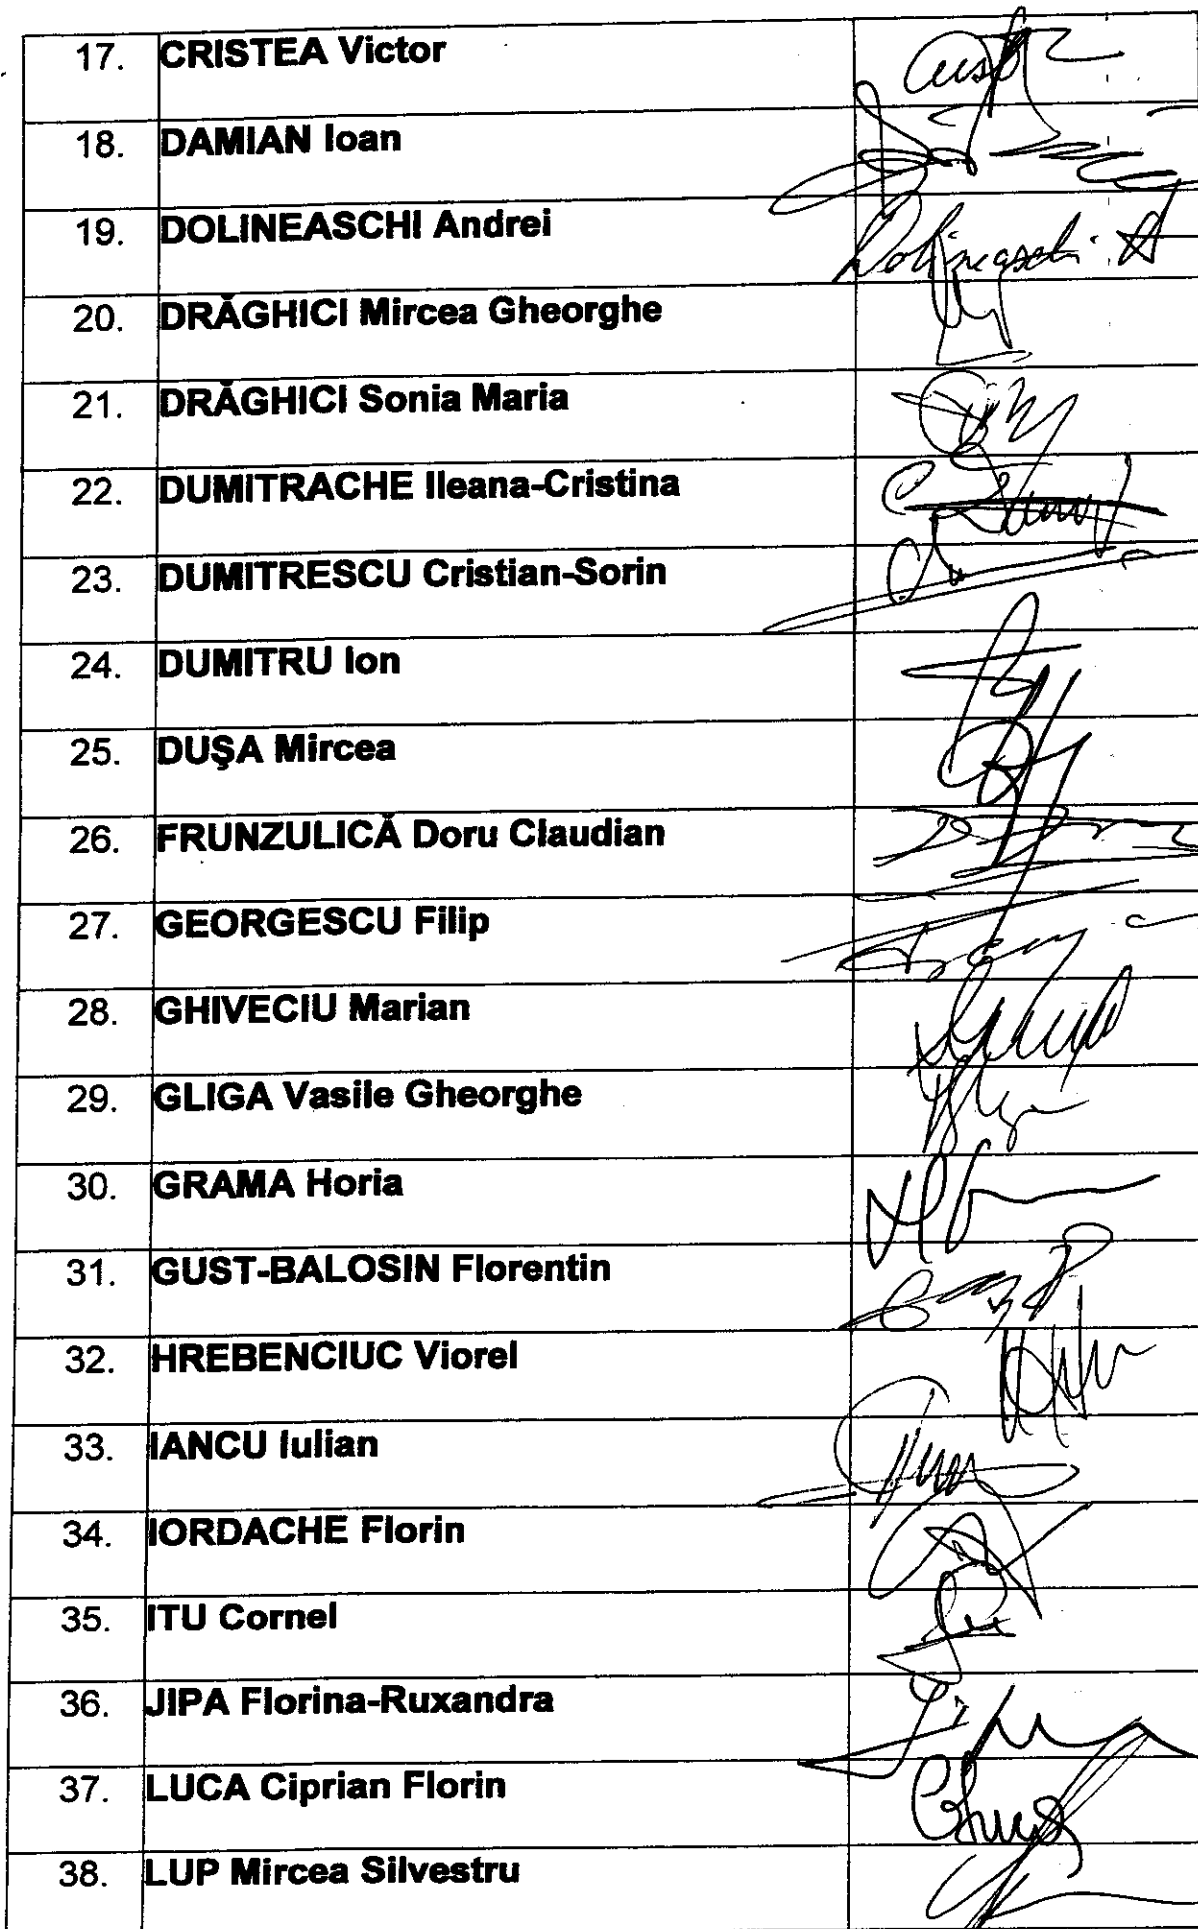 17. CRISTEA Victor
18. DAMIAN Ioan
19. DOLINEASCHI Andrei Dolineaschi A
20. DRĂGHICI Mircea Gheorghe
21. DRĂGHICI Sonia Maria
22. DUMITRACHE Ileana-Cristina
23. DUMITRESCU Cristian-Sorin
24. DUMITRU Ion
25. DUŞA Mircea
26. FRUNZULICĂ Doru Claudian
27. GEORGESCU Filip
28. GHIVECIU Marian
29. GLIGA Vasile Gheorghe
30. GRAMA Horia
31. GUST-BALOSIN Florentin
32. HREBENCIUC Viorel
33. IANCU Iulian
34. IORDACHE Florin
35. ITU Cornel
36. JIPA Florina-Ruxandra
37. LUCA Ciprian Florin
38. LUP Mircea Silvestru